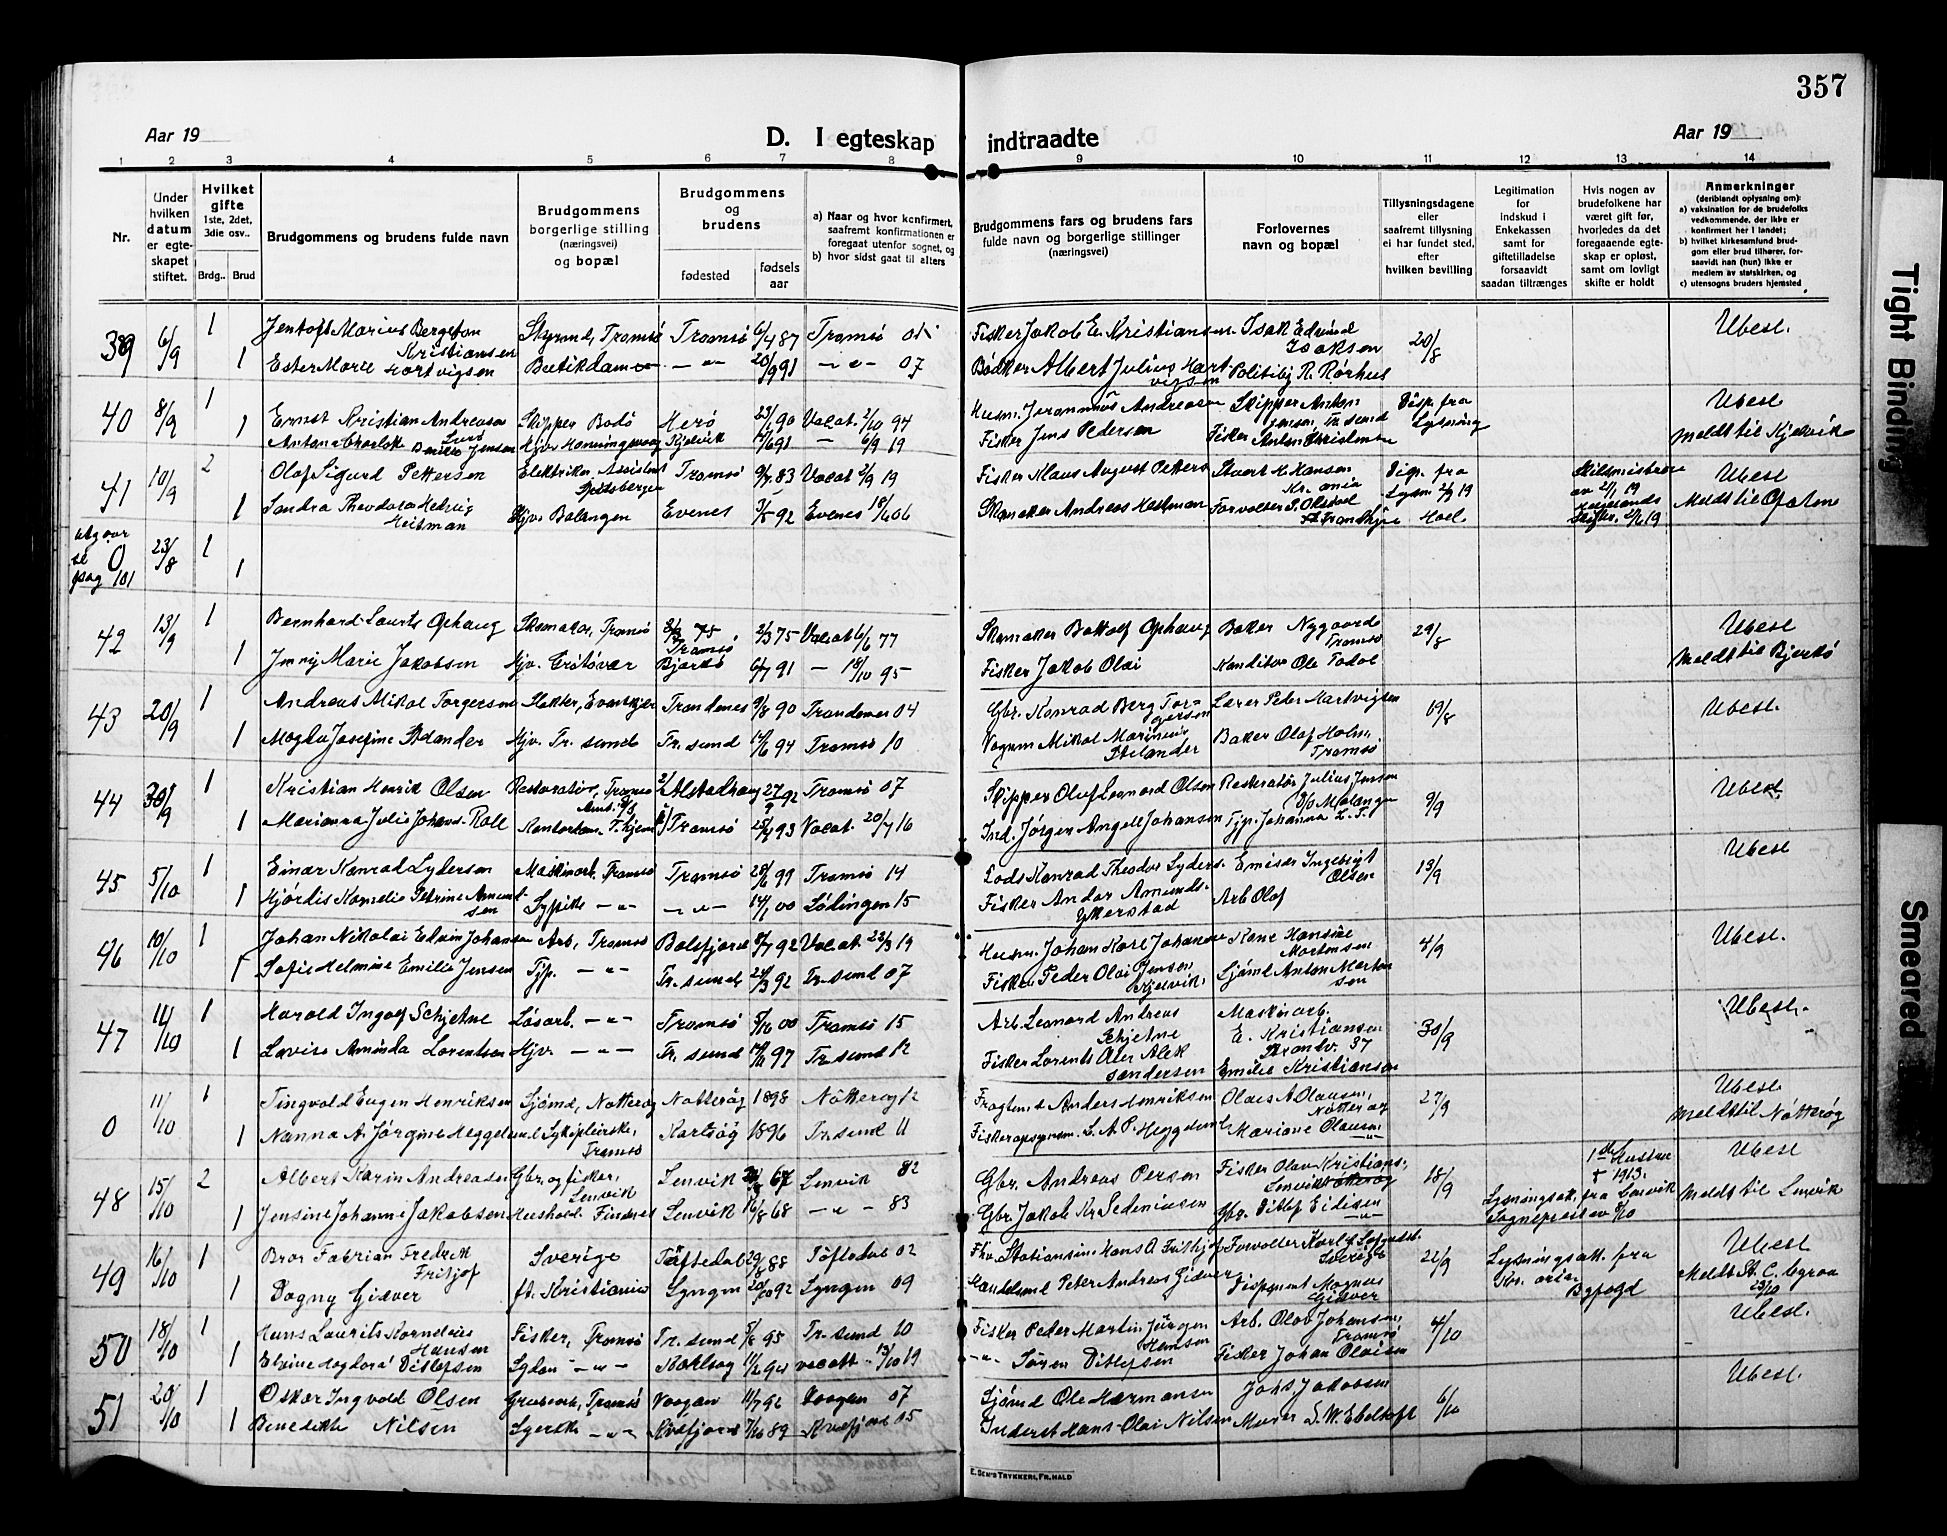 357
Aar 19
D. I egteskap indtraadte
Aar 19
1 2 3 4 5 6 7 8 9 10 11 12 13 14
Nr.
Under hvilken datum er egteskapet stiftet.
Hvilket gifte 1ste, 2det, 3die osv..
Brdg.. Brud
Brudgommens og brudens fulde navn
Brudgommens borgerlige stilling (næringsvei) og bopæl
Brudgommens og brudens
fødested
fødsels aar
a) Naar og hvor konfirmert, saafremt konfirmationen er foregaat utenfor sognet, og
b) hvor sidst gaat til alters
Brudgommens fars og brudens fars fulde navn og borgerlige stillinger (næringsvei)
Forlovernes navn og bopæl
Tillysningsdagene eller saafremt tillysning ei har fundet sted, efter hvilken bevilling
Legitimation for Indskud i Enkekassen samt for giftetilladelse forsaavidt saadan tiltrænges
Hvis nogen av brudefolkene har været gift før, hvorledes da det foregaaende egteskap er opløst, samt om lovligt skifte er holdt
Anmerkninger (deriblandt oplysning om): a) vaksination for de brudefolks vedkommende, der ikke er konfirmert her i landet; b) hvilket kirkesamfund brudgom eller brud tilhører, forsaavidt han (hun) ikke er medlem av statskirken, og c) utensogns bruders hjemsted.
39 6/9 1 Jentoft Marius Bergeton Kristiansen Styrmd, Tromsø Tromsø 6/4 87 Tromsø Fisker Jakob E. Kristiansen Isak Edvind Isaksen 20/8 Ubesl.
1 Ester Marie Hartvigsen Butikdame — " — 20/9 91 — " — 07 Bødker Albert Julius Hartvigsen Politibtj R. Rørhus
40 8/9 1 Ernst Kristian Andreassen Skipper Bodø Herø 23/1 90 Vacat. 2/10 94 Husm. Andreassen Skipper Anton Jensen, Tr.sund Disp. fra Lysning Ubesl
1 Jensen Hjv. Honningsvaag Kjelvik 6/9 19 Fisker Jens Pedersen Fisker Anton Kristiansen Meldt til Kjelvik
41 10/9 2 Olaf Sigurd Pettersen Elektriker Assistent Spitsbergen Tromsø 9/7 83 Vacat 2/9 19 Fisker Klaus August Petters Stuert H. Hansen Kr.ania Disp. fra Lysn 2/9 19 Skilsmisbev. av 2/1 19 Ubesl
1 Sandra Theodora Hedvig Heitman Hjv. Balangen Evenes 3/5 92 Evenes 18/6 06 Skomaker Andreas Heitman Forvalter S. Olstad Hoel Meldt til Ofoten
utgaar se pag 101 0 23/8 1
1
42 13/9 1 Bernhard Laurits Ophaug Skomaker, Tromsø Tromsø 2/3 75 Vacat 6/6 77 Skomaker Bottolf Ophaug Baker Nygaard Tromsø 29/8 Ubesl
1 Jenny Marie Jakobsen Hjv. Bjarkø 6/7 91 — 18/10 95 Fisker Jakob Olai Konditor Ole Todal Meldt til Bjarkø
43 20/9 1 Andreas Mikal Torgersen Slakter, Evenskjer Trondenes 9/8 90 Trondenes 04 Gbr. Konrad Berg Torgersen Lærer Peder Hartvigsen 19/8 Ubesl.
1 Magda Josefine Hjv. Tr.sund Tr.sund 94 Tromsø 10 Mikal Marinius Baker Olaf Holm, Tromsø
44 30/9 1 Kristian Henrik Olsen Restauratør, Tromsø Alstadhaug 27/9 92 Tromsø 07 Skipper Olaf Leonard Olsen Restauratør Julius Jensen Malangen 9/9 Ubesl
1 Marianna Julie Johans. Roll Tromsø 25/7 93 Vacat. 20/7 16 Ind. Jørgen Angell Johansen Tjp. Johanna
45 5/10 1 Einar Konrad Lydersen Maskinarb. Tromsø Tromsø 28/6 99 Tromsø 14 Lods Konrad Theodor Lyders. Emisær Ingebrigt Olsen 13/9 Ubesl
1 Hjørdis Kornelie Petrine Amundsen Sypike — " — — " — 14/1 00 Lødingen 15 Fisker Andor Amunds. Arb Olaf
46 10/10 1 Johan Nikolai Edvin Johansen Arb, Tromsø Balsfjord 8/7 92 Vacat. 23/3 19 Husm. Johan Karl Johansen Kone Hansine Mortensen 4/9 Ubesl.
1 Sofie Helmine Emilie Jensen Tjp. — " — Tr.sund 92 Tr.sund 07 Fisker Peder Olai Jensen, Kjelvik Sjømd Anton Mortensen
47 11/10 1 Harald Ingolf Schjetne Løsarb. — " — Tromsø 5/10 00 Tromsø 15 Arb. Leonard Andreas Schjetne Maskinarb. E. Kristiansen Strandv. 37 30/9 Ubesl.
1 Lovise Aminda Lorentsen Hjv. — " — Tr.sund 97 Tr.sund 12 Fisker Lorents Oler Aleksandersen Emilie Kristiansen
0 11/10 1 Tingvald Eugen Henriksen Sjømd, Nøtterøy Nøtterøy 1898 Nøtterøy 12 Fragtemd Anders Henriksen Olaus A Olausen, Nøtterøy 27/9 Ubesl
1 Nanna A. Jørgine Heggelund Sykepleirske, Tromsø Karlsøy 1896 Tr.sund 11 Fiskeropsynsm. L. A. P. Heggelund Mariane Olausen Meldt til Nøtterøy
48 15/10 2 Albert Karin Andreassen Gbr. og fisker, Lenvik Lenvik 67 Lenvik 82 Gbr. Andreas Person Fisker Olav Kristians., Lenvik 18/9 1ste Hustru † 1913. Ubesl
1 Jensine Johanne Jakobsen Hushold. Finsnes Lenvik 16/8 68 — " — 83 Gbr Jakob Kr. Gbr. Ditlef Eidisen Lysningsatt. fra Lenvik Sogneprest av 8/10 Meldt til Lenvik
49 16/10 1 Bror Fabrian Fredrik Fritjof Sverige Töftedal 29/8 88 Töftedal 02 Fhv. Stationsinsp. Hans A. Frithjof Forvalter Karl Sverige 21/9 Lysningsatt. fra Kr.ania Byfogd Ubesl
1 Dagny Giæver ft. Kristiania Lyngen 20/10 92 Lyngen 09 Handelsmd Peter Andreas Giæver Disponent Magnus Giæver Meldt St. C. Byraa 23/10
50 18/10 1 Hans Laurits Kornelius Hansen Fisker, Tromsø Tr.sund 5/8 95 Tr.sund 10 Fisker Peder Martin Jürgen Hansen Arb. Olav Johansen, Tromsø 4/10 Ubesl.
1 Ditlefsen Sydam — " — Karlsøy 11/2 94 vacatt. 13/10 19 — " — Søren Ditlefsen Fisker Johan Olaisen
51 20/10 1 Oskar Ingvald Olsen Grubearb., Tromsø Vaagan 11/7 96 Vaagan 07 Sjømd Ole Hermansen Johs Jakobsen 6/10 Ubesl.
1 Benedikte Nilsen Syerske — " — Kvæfjord 7/10 89 Kvæfjord 05 Inderst Hans Olai Nilsen Murer S. W. Ebeltoft
E. SEM'S TRYKKERI, FR.HALD
Tight Binding
Smeared